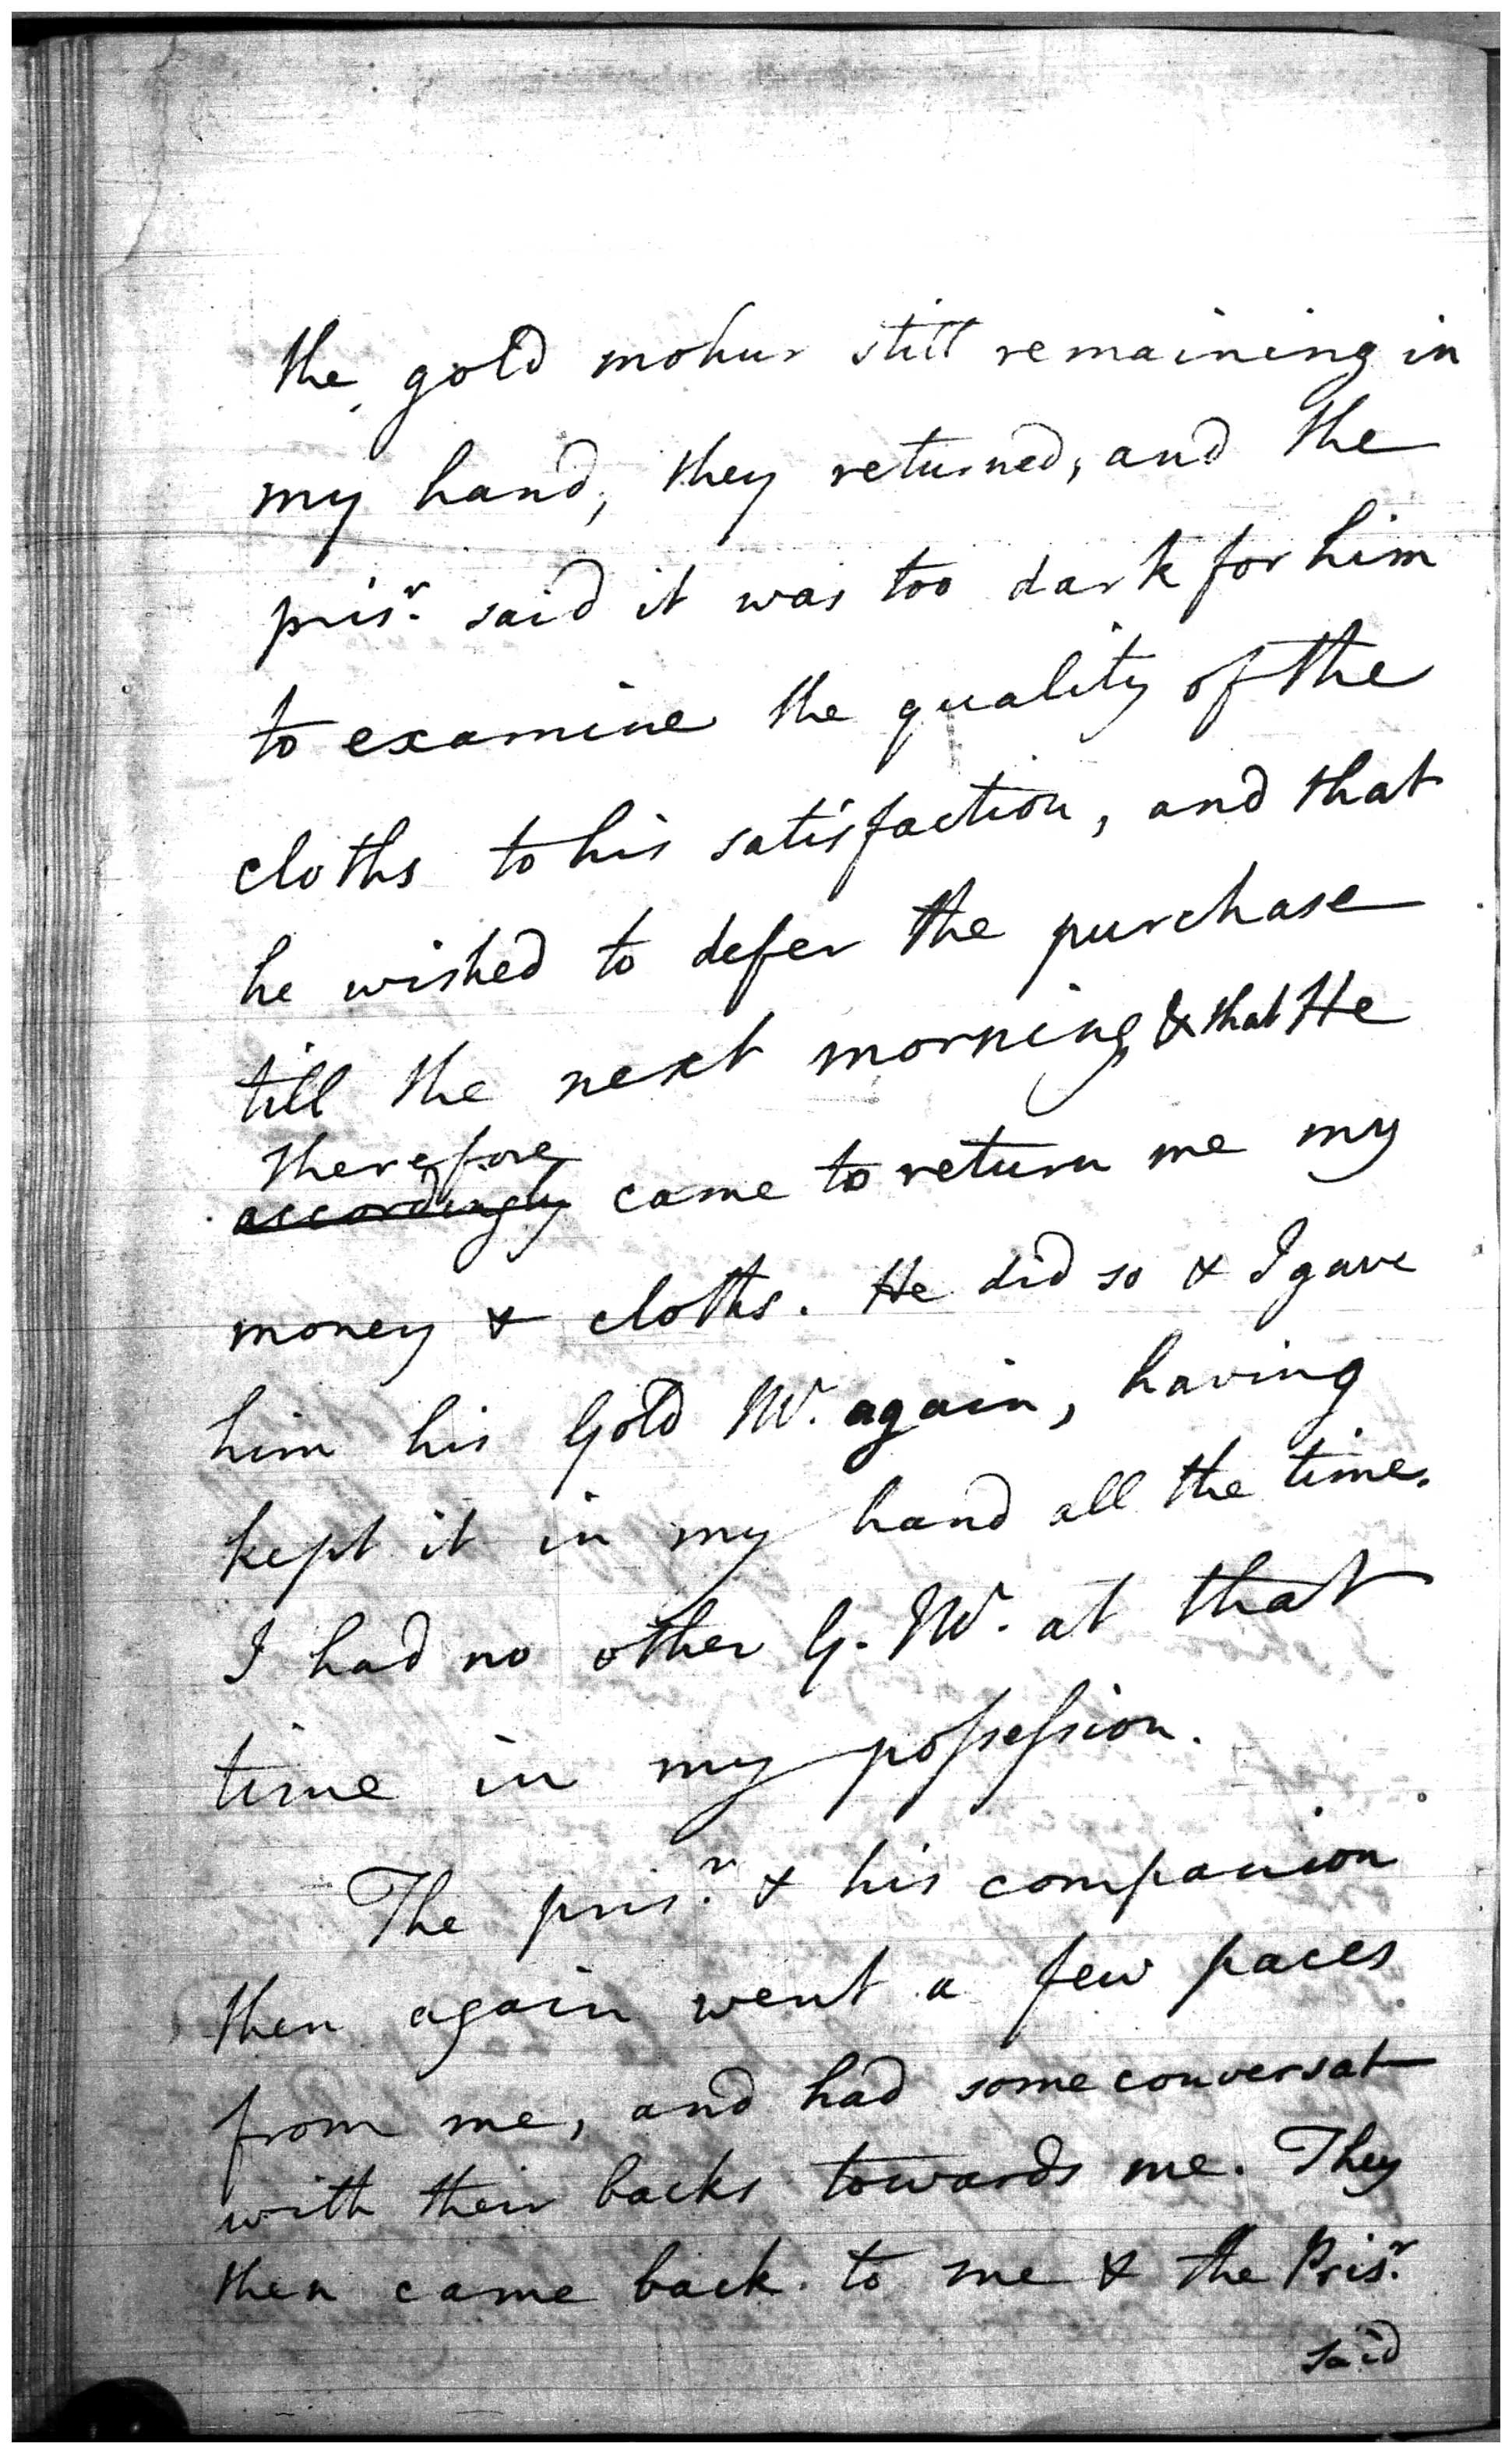 the gold mohur still remaining in
my hand, they returned, and the
prisr. said it was too dark for him
to examine the quality of the
cloths to his satisfaction, and that
he wished to defer the purchase
till the next morning & that He
therefore
accordingly came to return me my
money & cloths. He did so & I gave
him his Gold M. again, having
kept it in my hand all the time.
I had no other G. M. at that
time in my possession.
The prisr. & his companion
then again went a few paces
from me, and had some conversat
with their backs towards me. They
then came back to me & the Prisr.
said